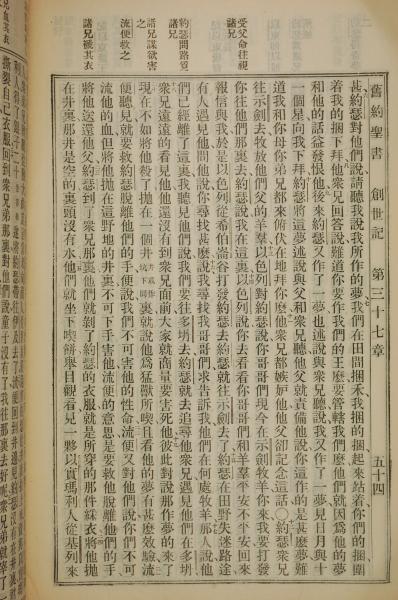 舊約聖書 創世記 第三十七章 五十四
受父命往視諸兄
約瑟問路覓諸兄
諸兄謀欲害之
流便救之
諸兄褫其衣
甚約瑟對他們說請聽我說我所作的夢我們在田間捆禾我捆的捆起來站着你們的捆圍
着我的捆下拜他衆兄回答說難道你要作我們的王麽要管轄我們麽他們就因爲他的夢
和他的話益發恨他後來約瑟又作了一夢也述說與衆兄聽說我又作了一夢見日月與十
一個星向我下拜約瑟將這夢述說與父和衆兄聽他父就責備他說你這作的是甚麽夢難
道我和你母你弟兄都來俯伏在地拜你麽他衆兄都嫉妬他他父卻記念這話○約瑟衆兄
往示劍去牧放他們父的羊羣以色列對約瑟說你哥哥們現今在示劍牧羊你來我要打發
你往他們那裏去約瑟說我在這裏以色列說你去看看你哥哥們和羊羣平安不平安回來
報信與我於是以色列從希伯崙谷打發約瑟去約瑟就往示劍去了約瑟在田野失迷路途
有人遇見他問他說你尋找甚麽說我尋找我哥哥們求告訴我他們在何處牧羊那人說他
們已經離了這裏我聽見他們說我們要往多坍去約瑟就去追尋他衆兄遇見他們在多坍
衆兄遠遠的看見他他還沒有到衆兄面前大家就商量要害死他彼此對說那作夢的來了
現在不如將他殺了抛在一個井井或作坑下同裏就說他爲猛獸所喫且看他的夢有甚麽效驗流
便聽見就要救約瑟脫離他們的手便說我們不可害他的性命流便又對他們說你們不可
流他的血但將他抛在這野地的井裏不可下手害他流便的意思是要救他脫離他們的手
將他送還他父約瑟到了衆兄那裏他們就剝了約瑟的衣服就是所穿的那件綵衣將他抛
在井裏那井是空的裏頭沒有水他們就坐下喫餅舉目觀看見一夥以實瑪利人從基列來